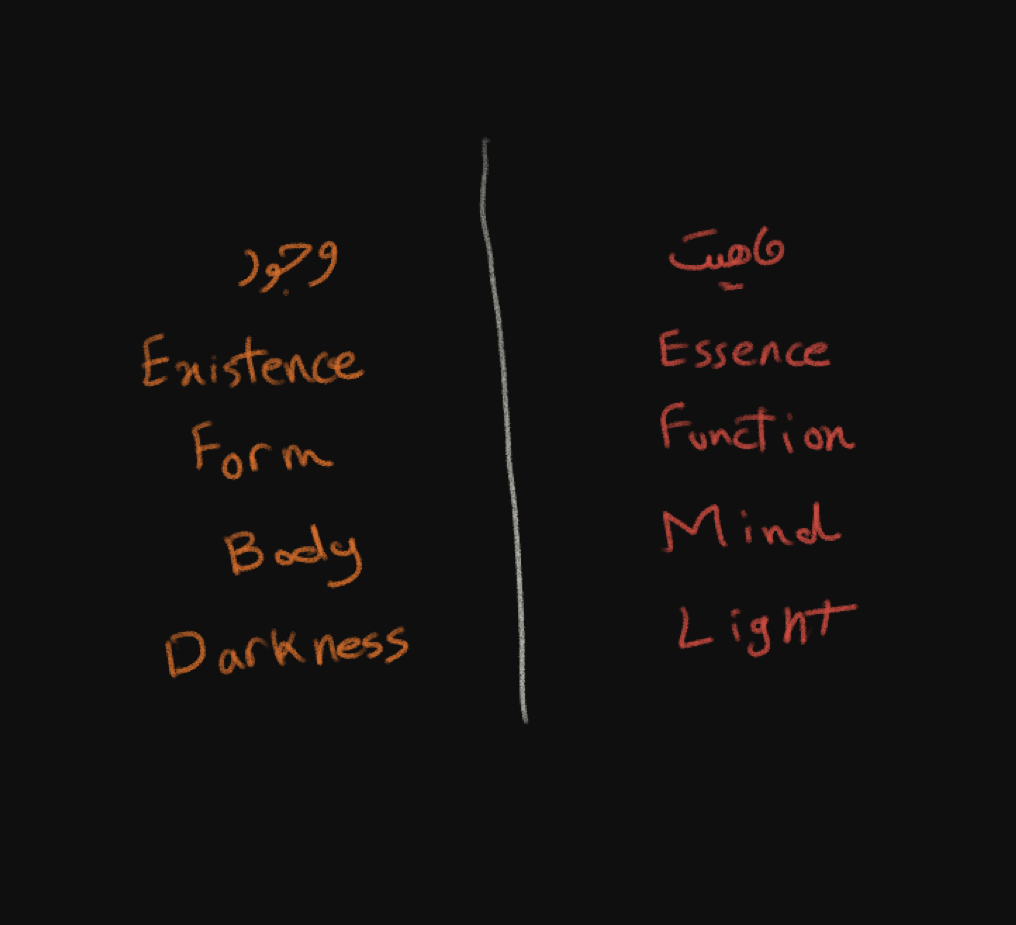 وجود
Existence
Form
Body
Darkness
ماهیت
Essence
Function
Mind
Light